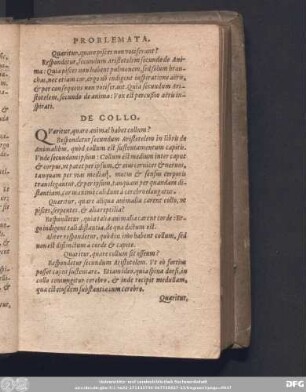 PROBLEMATA.
Quæritur, quare pisces non vociferant?
Respondetur, secundum Aristotelem secundo de Ani-
ma: Quia pisces non habent pulmonem, sed solum bran-
chas, nec etiam cor, ergo non indigent inspiratione aëris,
& per consequens non vociferant. Quia secundum Ari-
stotelem, secundo de anima: Vox est percussio aëris in-
spirati.
DE COLLO.
QVæritur, quare animal habet collum?
Respondetur secundum Aristotelem in libris de
Animalibus, quod collum est sustentamentum capitis.
Vnde secundum ipsum: Collum est medium inter caput
& corpus, ut patet per ipsum, & eius cervices & neruos,
tanquam per vias medias, motus & sensus corporis
Quæritur, quare aliqua animalia carent collo, ut
pisces, serpentes, & alia reptilia?
Respondetur, quia talia animalia carent corde: Er-
go indigent tali distantia, de qua dictum est.
Aliter respondetur, quòd ea non habent collum, sed
non est distinctum à corde & capite.
Quæritur, quare collum sit osseum?
Respondetur secundum Aristotelem. Vt eò fortius
posset caput sustentare. Etiam ideo, quia spina dorsi, in
collo coniungitur cerebro, & inde recipit medullam,
quæ est eiusdem substantiæ cum cerebro.
Quæritur,